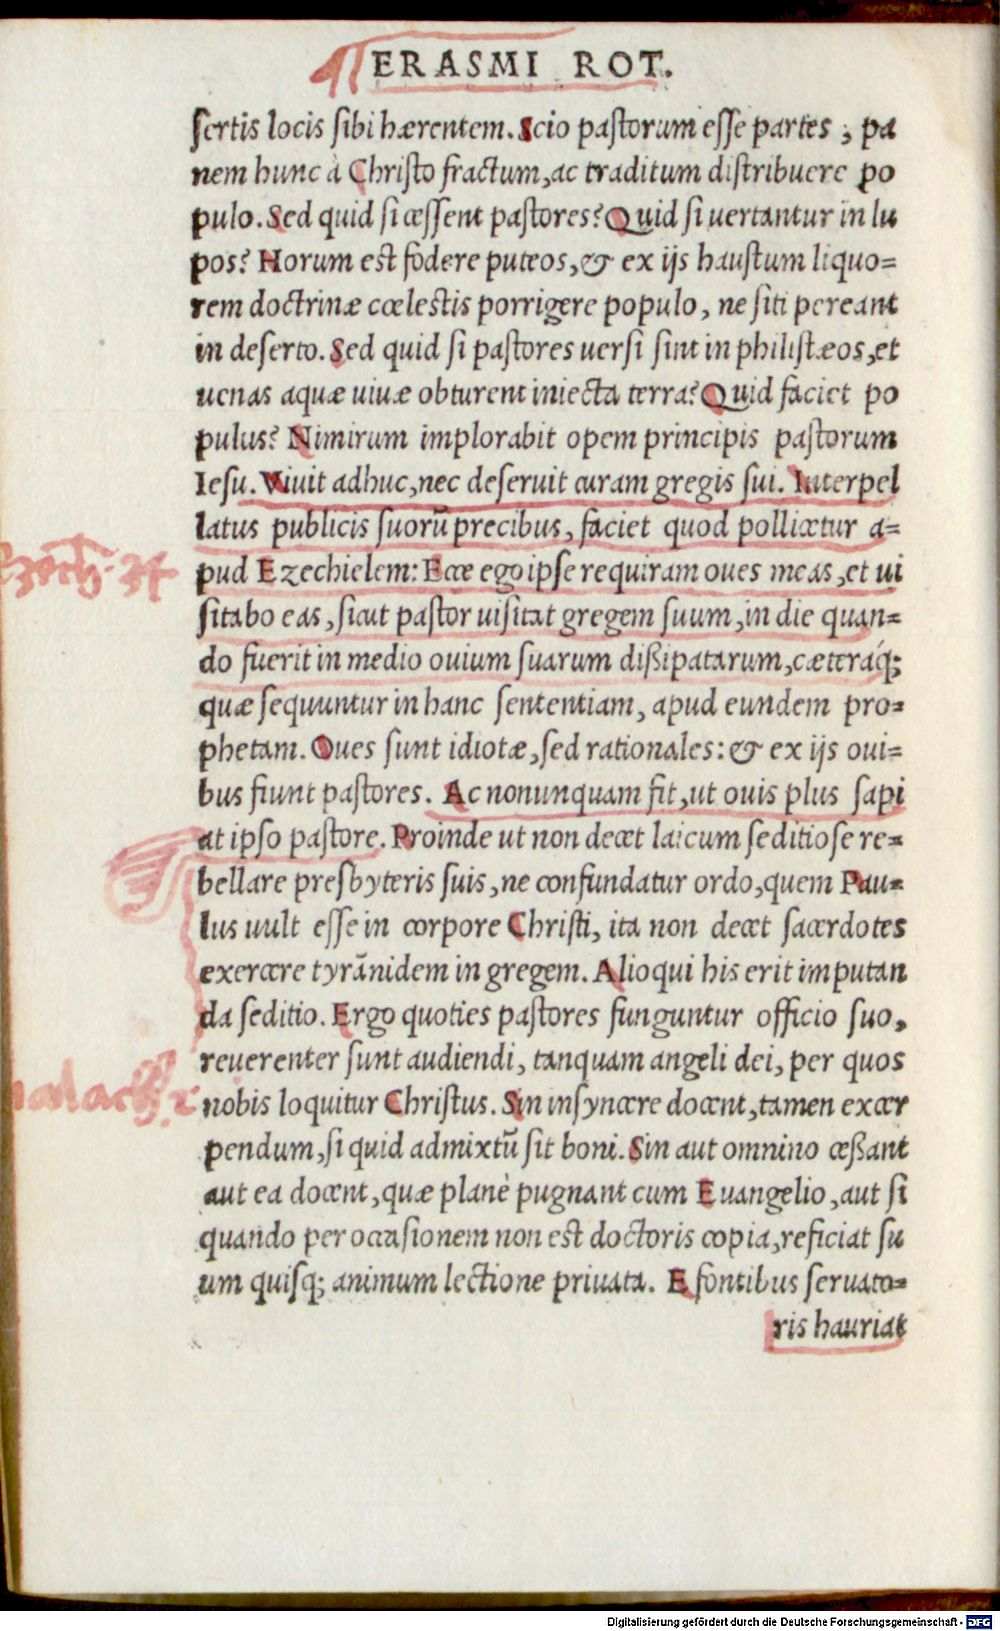 ERASMI ROT.
sertis locis sibi hærentem. Scio pastorum esse partes, pa
nem hunc à Christo fractum, ac traditum distribuere po
pulo. Sed quid si cessent pastores? Quid si uertantur in lu
pos? Horum est fodere puteos, & ex ijs haustum liquo=
rem doctrinæ cœlestis porrigere populo, ne siti pereant
in deserto. Sed quid si pastores uersi sint in philistæos, et
uenas aquæ uiuæ obturent iniecta terra? Quid faciet po
pulus? Nimirum implorabit opem principis pastorum
Iesu. Viuit adhuc, nec deseruit curam gregis sui. Interpel
latus publicis suorũ precibus, faciet quod pollicetur a=
pud Ezechielem: Ecce ego ipse requiram oues meas, et ui
Ezech. 34
sitabo eas, sicut pastor uisitat gregem suum, in die quan=
do fuerit in medio ouium suarum dißipatarum, cæteráq;
quæ sequuntur in hanc sententiam, apud eundem pro=
phetam. Oues sunt idiotæ, sed rationales: & ex ijs oui=
bus fiunt pastores. Ac nonunquam fit, ut ouis plus sapi
at ipso pastore. Proinde ut non decet laicum seditiose re=
bellare presbyteris suis, ne confundatur ordo, quem Pau=
lus uult esse in corpore Christi, ita non decet sacerdotes
exercere tyrãnidem in gregem. Alioqui his erit imputan
da seditio. Ergo quoties pastores funguntur officio suo,
reuerenter sunt audiendi, tanquam angeli dei, per quos
malach. 2
nobis loquitur Christus. Sin insyncere docent, tamen excer
pendum, si quid admixtũ sit boni. Sin aut omnino ceßant
aut ea docent, quæ planè pugnant cum Euangelio, aut si
quando per occasionem non est doctoris copia, reficiat su
um quisq; animum lectione priuata. E fontibus seruato=
ris hauriat
Digitalisierung gefördert durch die Deutsche Forschungsgemeinschaft - DFG